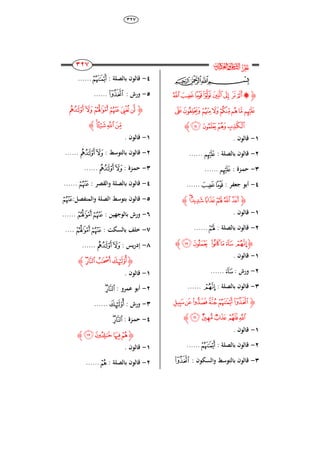 ٣٢٧
٣٢٧
﴿ أَلَمْ تَرَ إِلَى الَّذِينَ تَوَلَّوْا قَوْمًا غَضِبَ اللَّهُ
عَلَيْهِم مَّا هُم مِّنكُمْ وَلَا مِنْهُمْ وَيَحْلِفُونَ عَلَى
الْكَذِبِ وَهُمْ يَعْلَمُونَ ﴾
١- قالون .
٢- قالون بالصلة : عَلَيْهِم ......
٣- حمزة : عَلَيْهِم ......
٤- أبو جعفر : قَوْمًا غَضِبَ ......
﴿ أَعَدَّ اللَّهُ لَهُمْ عَذَابًا شَدِيدًا
١- قالون .
٢- قالون بالصلة : لَهُمْ ......
﴿ إِنَّهُمْ سَاءَ مَا كَانُوا يَعْمَلُونَ ﴾
١- قالون .
٢- ورش : سَاءَ ......
٣- قالون بالصلة : إِنَّهُمْ ......
﴿ اتَّخَذُوا أَيْمَانَهُمْ جُنَّةً فَصَدُّوا عَن سَبِيلِ
اللَّهِ فَلَهُمْ عَذَابٌ مُّهِينٌ ﴾
١- قالون .
٢- قالون بالصلة : أَيْمَانَهُمْ ......
٣- قالون بالتوسط والسكون : اتَّخَذُوا
٤- قالون بالصلة : أَيْمَانَهُمْ ......
٥- ورش : اتَّخَذُوا ......
﴿ لَّن تُغْنِيَ عَنْهُمْ أَمْوَالُهُمْ وَلَا أَوْلَادُهُم
مِّنَ اللَّهِ شَيْئًا ﴾
١- قالون .
٢- قالون بالتوسط : وَلَا أَوْلَادُهُم ......
٣- حمزة : وَلَا أَوْلَادُهُم ......
٤- قالون بالصلة والقصر : عَنْهُمْ ......
٥- قالون بتوسط الصلة والمنفصل: عَنْهُمْ
٦- ورش بالوجهين : عَنْهُمْ أَمْوَالُهُمْ ......
٧- خلف بالسكت : عَنْهُمْ أَمْوَالُهُمْ ....
٨- إدريس : وَلَا أَوْلَادُهُم ......
﴿ أُولَٰئِكَ أَصْحَابُ النَّارِ ﴾
١- قالون .
٢- أبو عمرو : النَّارِ
٣- ورش : أُولَٰئِكَ ......
٤- حمزة : النَّارِ
﴿ هُمْ فِيهَا خَالِدُونَ ﴾
١- قالون .
٢- قالون بالصلة : هُمْ ......